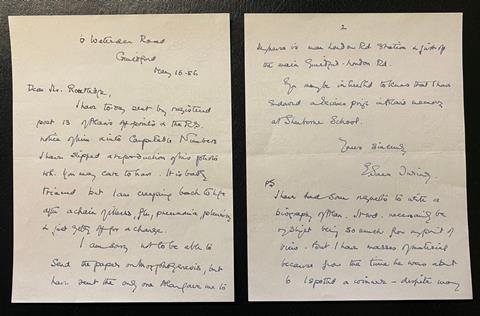 6 Waterden Road
Guildford
May 16. 56
Dear Mr.
I have to-day sent by registered
post 13 of Alan's offprints & the R.S.
notice of him & into Computable Numbers
I have slipped a reproduction of his photo
wh. you may care to have. It is badly
trimmed but I am creeping back to life
after a chain of illness, flu, pneumonia, pleurisy
& just getting off for a change.
I am sorry not to be able to
send the paper on Morphogenesis, but
have sent the only one Alan gave me to
2
is near London Rd. Station & just off
the main Guildford-London Rd.
You may be interested to know that I have
endowed a Science prize in Alan's memory
at Sherborne School.
Yours sincerely
E. Sara Turing
PS
I have had some requests to write a
biography of Alan. It wd. necessarily be
my slight being so much from my point of
view. But I have masses of material
because from the time he was about
6 I spotted a winner - despite many